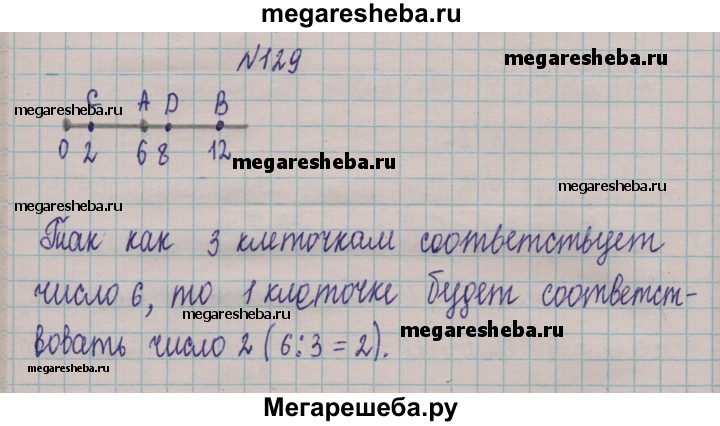 megaresheba.ru
N129
megaresheba.ru
C A D B
megaresheba.ru
0 2 6 8 12
megaresheba.ru
megaresheba.ru
megaresheba.ru
Так как 3 клеточкам соответствует
число 6, то 1 клеточке будет соответст-
megaresheba.ru
megaresheba.ru
вовать число 2 (6:3=2).
megaresheba.ru
Мегарешеба.ру